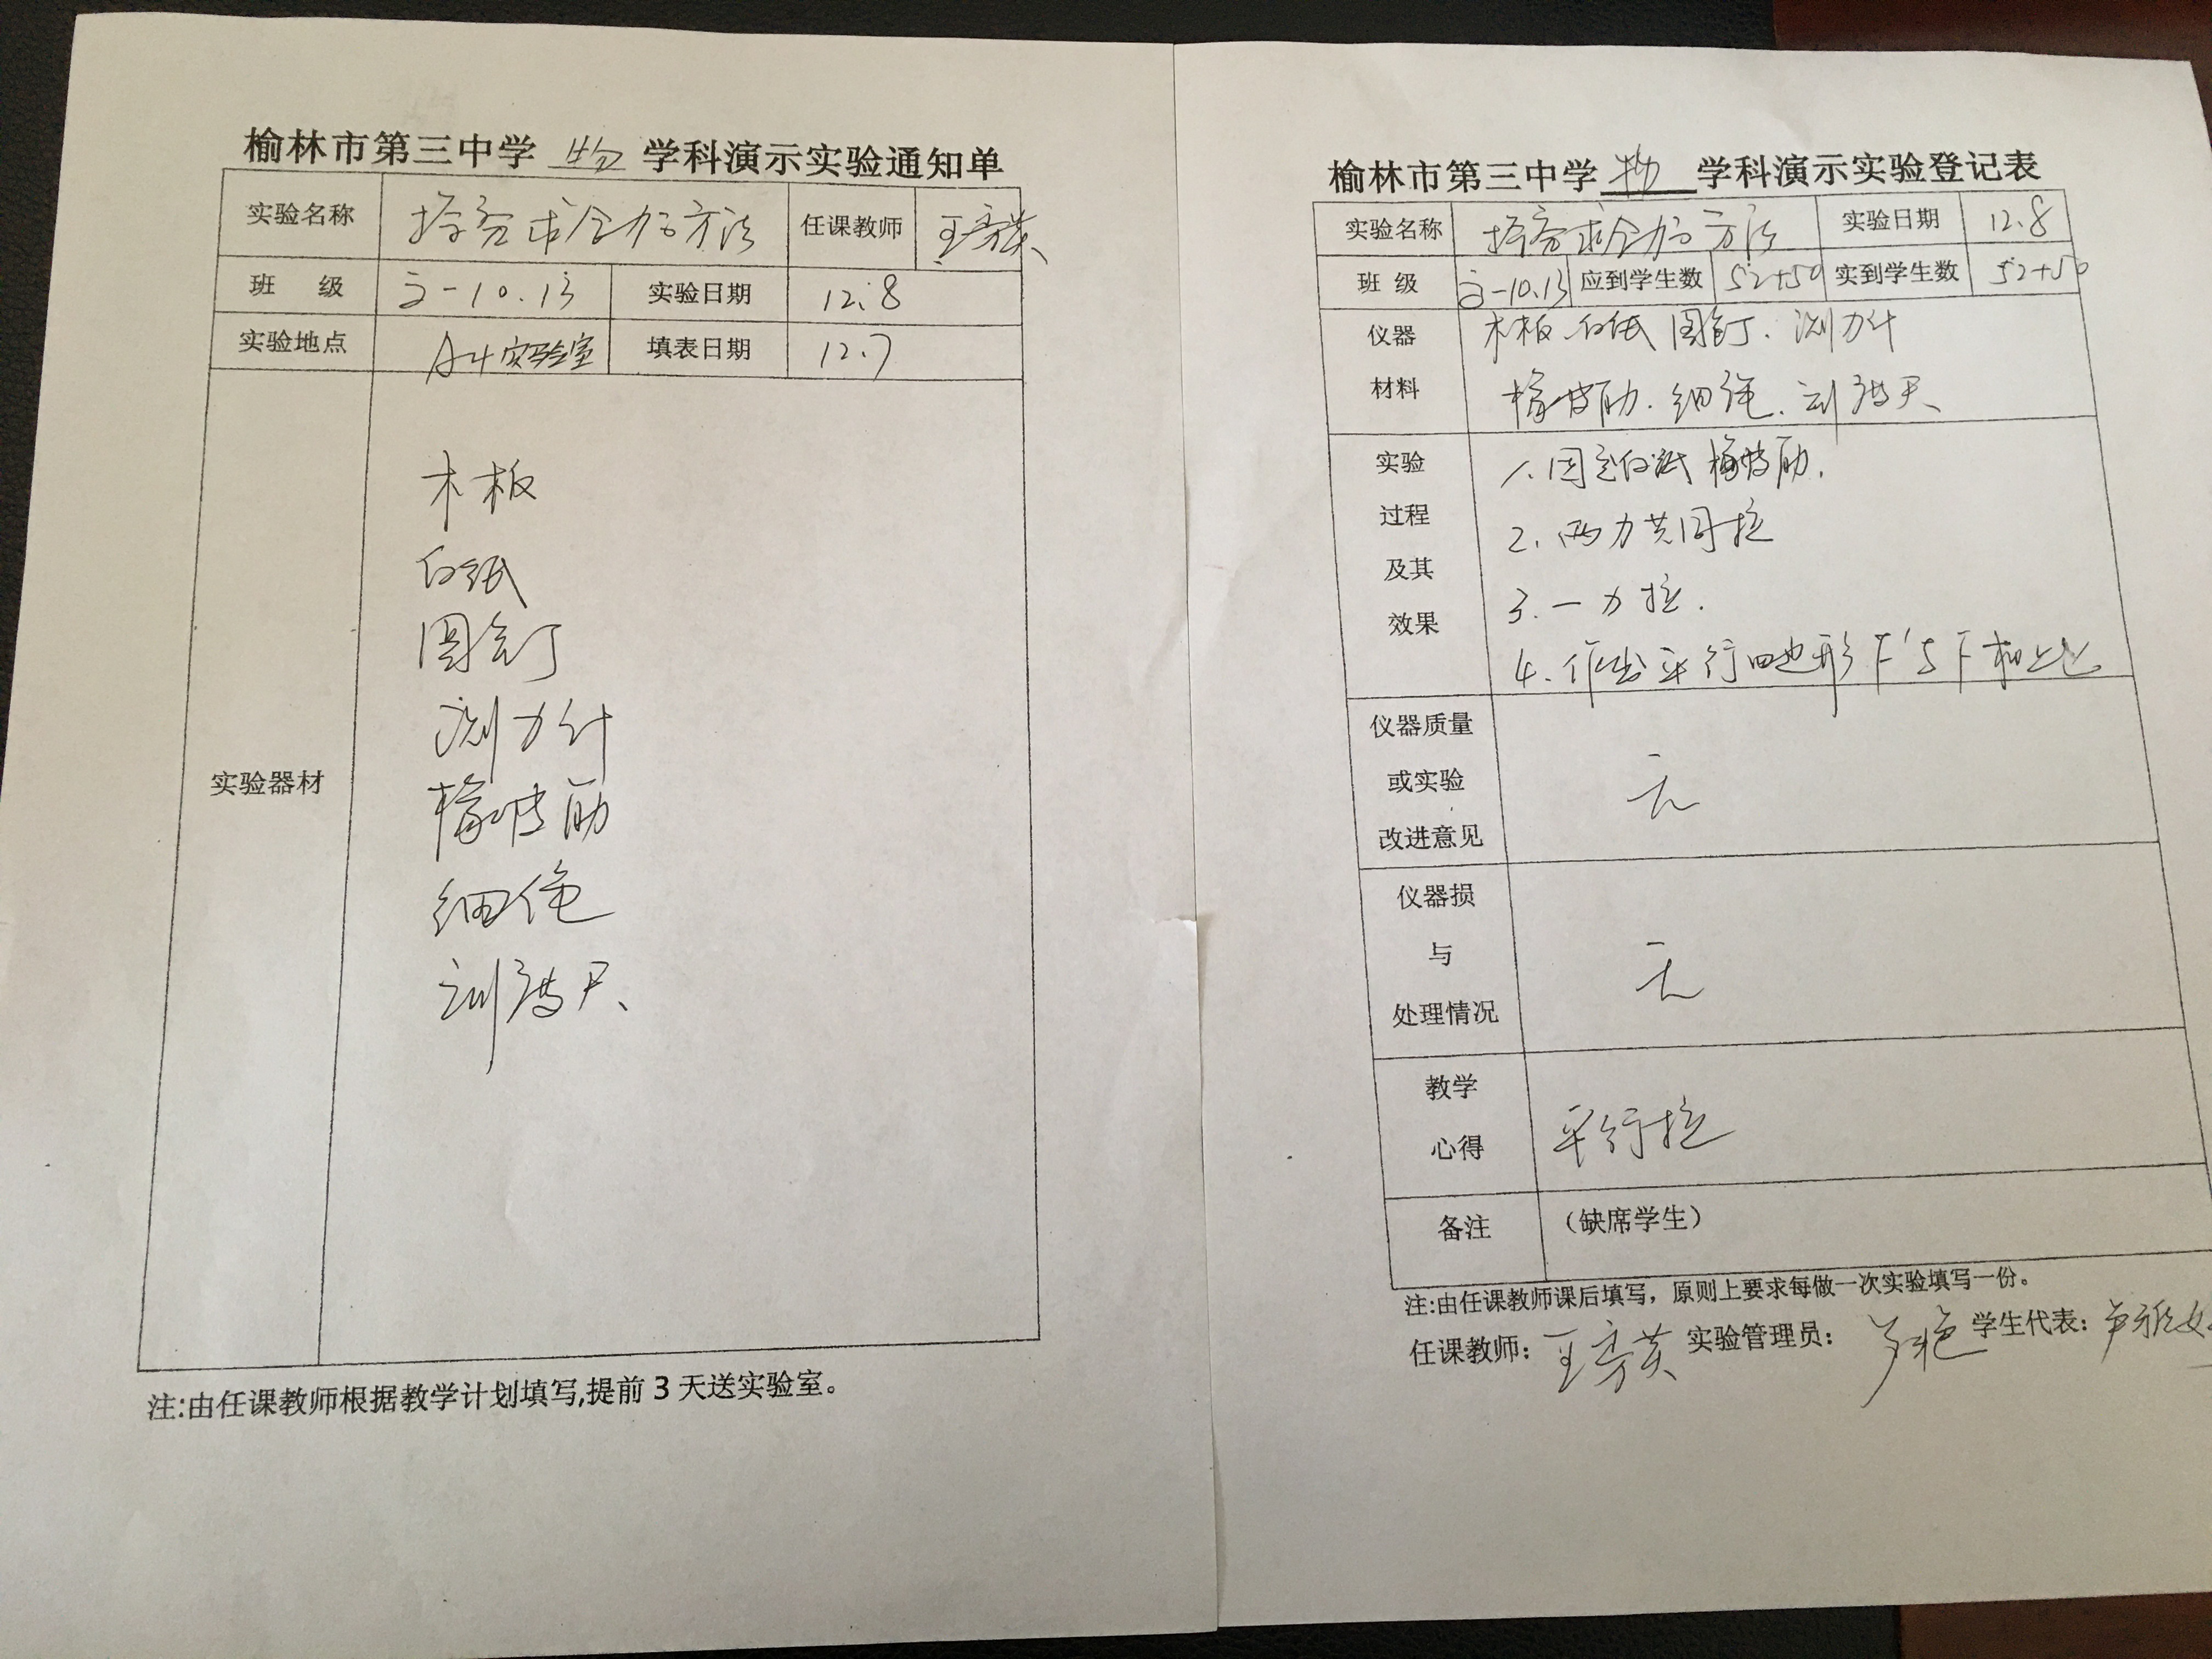 榆林市第三中学 物 学科演示实验通知单
实验名称 探究求合力的方法 任课教师 王芳英
班 级 高一10.13 实验日期 12.8
实验地点 A4实验室 填表日期 12.7
实验器材
木板
白纸
图钉
测力计
橡皮筋
细绳
刻度尺
注:由任课教师根据教学计划填写,提前3天送实验室。
榆林市第三中学 物 学科演示实验登记表
实验名称 探究求合力的方法 实验日期 12.8
班 级 高一10.13 应到学生数 52+50 实到学生数 52+50
仪器 木板 白纸 图钉. 测力计
材料 橡皮筋. 细绳. 刻度尺
实验 1. 固定白纸 橡皮筋.
过程 2. 两力共同拉
及其 3. 一力拉.
效果 4. 作出平行四边形 F'与F相比
仪器质量
或实验 无
改进意见
仪器损
与 无
处理情况
教学
心得 平行拉
备注 (缺席学生)
注:由任课教师课后填写，原则上要求每做一次实验填写一份。
任课教师: 王芳英 实验管理员: 学生代表: